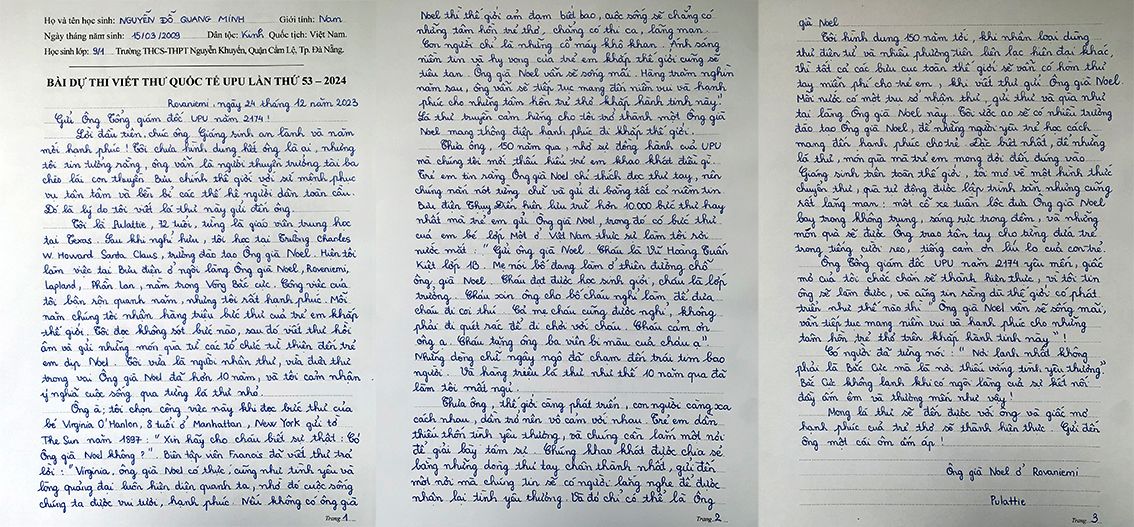 Họ và tên học sinh: NGUYỄN ĐỖ QUANG MINH Giới tính: Nam
Ngày tháng năm sinh: 15/03/2009 Dân tộc: Kinh Quốc tịch: Việt Nam.
Học sinh lớp: 9/1 Trường THCS-THPT Nguyễn Khuyến, Quận Cẩm Lệ, Tp. Đà Nẵng.
BÀI DỰ THI VIẾT THƯ QUỐC TẾ UPU LẦN THỨ 53 – 2024
Rovaniemi, ngày 24 tháng 12 năm 2023
Gửi Ông Tổng giám đốc UPU năm 2174!
Lời đầu tiên, chúc ông Giáng sinh an lành và năm
mới hạnh phúc! Tôi chưa hình dung hết ông là ai, nhưng
tôi tin tưởng rằng, ông vẫn là người thuyền trưởng tài ba
chèo lái con thuyền Bưu chính thế giới với sứ mệnh phục
vụ tận tâm và bền bỉ các thế hệ người dân toàn cầu.
Đó là lý do tôi viết lá thư này gửi đến ông.
Tôi là Pulattie, 72 tuổi, từng là giáo viên trung học
tại Texas. Sau khi nghỉ hưu, tôi học tại Trường Charles
W. Howard Santa Claus, trường đào tạo Ông già Noel. Hiện tôi
làm việc tại Bưu điện ở ngôi làng Ông già Noel, Rovaniemi,
Lapland, Phần Lan, nằm trong Vòng Bắc Cực. Công việc của
tôi bận rộn quanh năm, nhưng tôi rất hạnh phúc. Mỗi
năm chúng tôi nhận hàng triệu bức thư của trẻ em khắp
thế giới. Tôi đọc không sót bức nào, sau đó viết thư hồi
âm và gửi những món quà từ các tổ chức từ thiện đến trẻ
em dịp Noel. Tôi vừa là người nhận thư, vừa đưa thư
trong vai Ông già Noel đã hơn 10 năm, và tôi cảm nhận
ý nghĩa cuộc sống qua từng lá thư nhỏ.
Ông ạ, tôi chọn công việc này khi đọc bức thư của
bé Virginia O'Hanlon, 8 tuổi ở Manhattan, New York gửi tờ
The Sun năm 1897: "Xin hãy cho cháu biết sự thật: Có
Ông già Noel không?". Biên tập viên Francis đã viết thư trả
lời: "Virginia, ông già Noel có thực, cũng như tình yêu và
lòng quảng đại luôn hiện diện quanh ta, nhờ đó cuộc sống
chúng ta được vui tươi, hạnh phúc. Nếu không có ông già
Trang 1
Noel thì thế giới ảm đạm biết bao, cuộc sống sẽ chẳng có
những tâm hồn trẻ thơ, chẳng có thi ca, lãng mạn.
Con người chỉ là những cỗ máy khô khan. Ánh sáng
niềm tin và hy vọng của trẻ em khắp thế giới cũng sẽ
tiêu tan. Ông già Noel vẫn sẽ sống mãi. Hàng trăm nghìn
năm sau, ông vẫn sẽ tiếp tục mang đến niềm vui và hạnh
phúc cho những tâm hồn trẻ thơ khắp hành tinh này".
Lá thư truyền cảm hứng cho tôi trở thành một Ông già
Noel mang thông điệp hạnh phúc đi khắp thế giới.
Thưa ông, 150 năm qua, nhờ sự đồng hành của UPU
mà chúng tôi mới thấu hiểu trẻ em khao khát điều gì.
Trẻ em tin rằng Ông già Noel chỉ thích đọc thư tay, nên
chúng nắn nót từng chữ và gửi đi bằng tất cả niềm tin.
Bưu điện Thụy Điển hiện lưu trữ hơn 10.000 bức thư hay
nhất mà trẻ em gửi Ông già Noel, trong đó có bức thư
của em bé lớp Một ở Việt Nam thực sự làm tôi rơi
nước mắt: "Gửi ông già Noel. Cháu là Vũ Hoàng Tuấn
Kiệt lớp 1B. Mẹ nói bố đang làm ở thiên đường chỗ
ông già Noel. Cháu đạt được học sinh giỏi, cháu là lớp
trưởng. Cháu xin ông cho bố cháu nghỉ làm, để đưa
cháu đi coi thú. Cả mẹ cháu cũng được nghỉ, không
phải đi quét rác để đi chơi với cháu. Cháu cảm ơn
ông ạ. Cháu tặng ông ba viên bi màu của cháu ạ".
Những dòng chữ ngây ngô đã chạm đến trái tim bao
người. Và hàng triệu lá thư như thế 10 năm qua đã
làm tôi mất ngủ.
Thưa ông, thế giới càng phát triển, con người càng xa
cách nhau, dần trở nên vô cảm với nhau. Trẻ em dần
thiếu thốn tình yêu thương, và chúng cần lắm một nơi
để giải bày tâm sự. Chúng khao khát được chia sẻ
bằng những dòng thư tay chân thành nhất, gửi đến
một nơi mà chúng tin sẽ có người lắng nghe để được
nhận lại tình yêu thương. Và đó chỉ có thể là Ông
Trang 2
già Noel
Tôi hình dung 150 năm tới, khi nhân loại dùng
thư điện tử và nhiều phương tiện liên lạc hiện đại khác,
thì tất cả các bưu cục toàn thế giới sẽ vẫn có hòm thư
tay miễn phí cho trẻ em, khi viết thư gửi Ông già Noel.
Mỗi nước có một trụ sở nhận thư, gửi thư và quà như
tại làng Ông già Noel này. Tôi ước ao sẽ có nhiều trường
đào tạo Ông già Noel, để những người yêu trẻ học cách
mang đến hạnh phúc cho trẻ. Đặc biệt nhất, để những
lá thư, món quà mà trẻ em mong đợi đến đúng vào
Giáng sinh trên toàn thế giới, tôi mơ về một hình thức
chuyển thư, quà tự động được lập trình sẵn nhưng cũng
rất lãng mạn: một cỗ xe tuần lộc đưa Ông già Noel
bay trong không trung, sáng rực trong đêm, và những
món quà sẽ được Ông trao tận tay cho từng đứa trẻ
trong tiếng cười reo, tiếng cảm ơn líu lo của con trẻ.
Ông Tổng giám đốc UPU năm 2174 yêu mến, giấc
mơ của tôi chắc chắn sẽ thành hiện thực, vì tôi tin
ông sẽ làm được, và cũng tin rằng dù thế giới có phát
triển như thế nào thì "Ông già Noel vẫn sẽ sống mãi,
vẫn tiếp tục mang niềm vui và hạnh phúc cho những
tâm hồn trẻ thơ trên khắp hành tinh này"!
Có người đã từng nói: "Nơi lạnh nhất không
phải là Bắc Cực mà là nơi thiếu vắng tình yêu thương."
Bắc Cực không lạnh khi có ngôi làng của sự kết nối
đầy ấm êm và thương mến như vậy!
Mong lá thư sẽ đến được với ông và giấc mơ
hạnh phúc của trẻ thơ sẽ thành hiện thực. Gửi đến
ông một cái ôm ấm áp!
Ông già Noel ở Rovaniemi
Pulattie
Trang 3